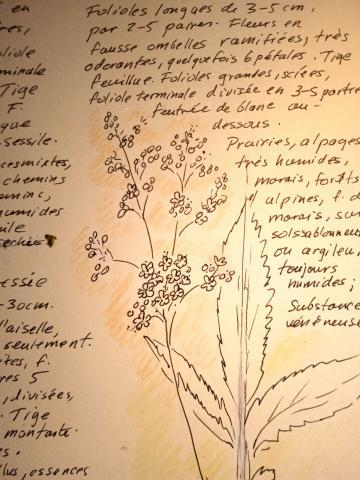 en
res,
foliole
minale
Tige
F.
que
sessile.
cesmixtes,
chemins
aminc,
humides
uile
sechées
essée
-30cm.
llaiselle,
seulement.
ites, f.
res 5
, divisées,
. Tige
montante.
es.
llus, essences
Folioles longues de 3-5 cm,
par 2-5 paires. Fleurs en
fausse ombelles ramifiées, très
odorantes, quelquefois 6 pétales. Tige
feuillue. Folioles grandes, sciées,
foliole terminale divisée en 3-5 parties
feutrée de blanc au-
dessous.
Prairies, alpages
très humides,
marais, forêts
alpines, f. d
marais, su
solssablonneu
ou argileu,
toujours
humides;
Substance
vénéneuse